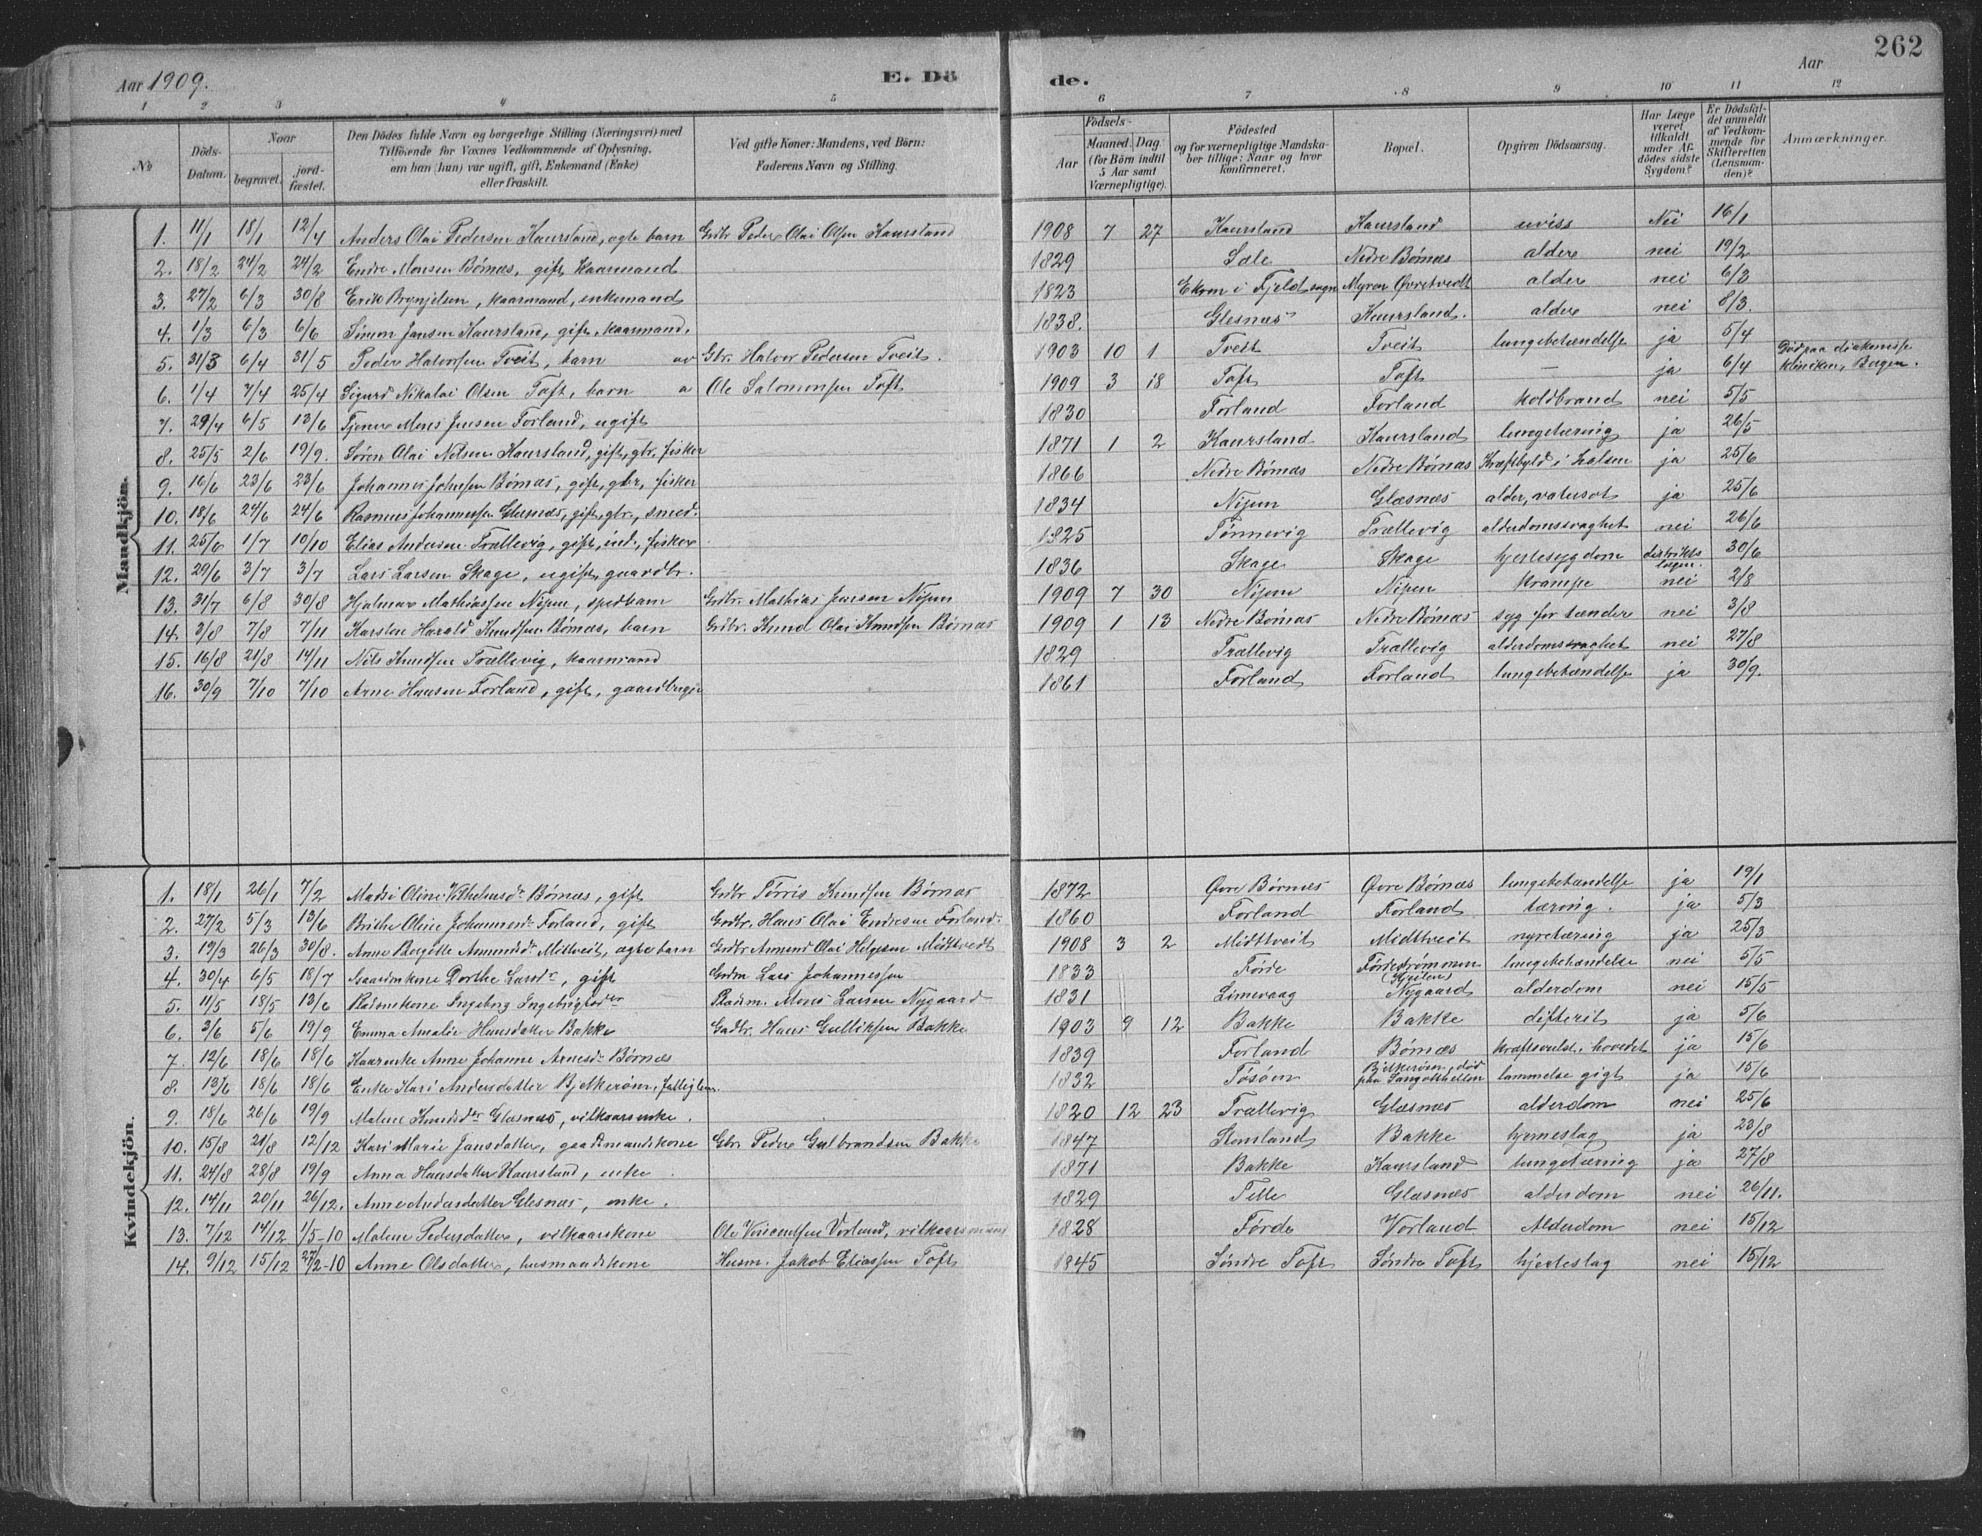 262
Aar 1909. E. Dö de. Aar
1 2 3 4 5 6 7 8 9 10 11 12
No Döds-Datum. Naar begravet. jordfæstet. Den Dödes fulde Navn og borgerlige Stilling (Næringsvei) med Tilföiende for Voxnes Vedkommende af Oplysning, om han (hun) var ugift, gift, Enkemand (Enke) eller fraskilt. Ved gifte Koner: Mandens, ved Börn: Faderens Navn og Stilling. Födsels- Aar Maaned. Dag. (for Börn indtil 5 Aar samt Værnepligtige). Födested og for værnepligtige Mandskaber tillige: Naar og hvor konfirmeret. Bopæl. Opgiven Dödsaarsag. Har Læge været tilkaldt under Afdödes sidste Sygdom? Er Dödsfaldet anmeldt af Vedkommende for Skifteretten (Lensmanden)? Anmærkninger.
Mandkjön.
1. 11/1 18/1 12/4 Anders Olai Pedersen Kaursland, ægte barn Grdbr Peder Olai Olsen Kaursland 1908 7 27 Kaursland Kaursland uviss Nei 16/1
2. 18/2 24/2 24/2 Endre Monsen Børnæs, gift, kaarmand 1829 Sæle Nedre Børnæs aldere nei 19/2
3. 27/2 6/3 30/8 Erik Brynjelsen, kaarmand, enkemand 1823 i Fjeld sogn Myren Øvretvedt aldere nei 6/3
4. 1/3 6/3 6/6 Simon Jansen Kaursland, gift, kaarmand. 1838. Glesnæs Kaursland. aldere nei 8/3.
5. 31/3 6/4 31/5 Peder Halvorsen Tveit, barn av Gbr. Halvor Pedersen Tveit. 1903 10 1 Tveit Tveit lungebetændelse ja 5/4 Død paa diakonisse kliniken, Bergen.
6. 1/4 7/4 25/4 Sigurd Nikolai Olsen Toft, barn a Ole Salomonsen Toft 1909 3 18 Toft Toft — ja 6/4
7. 29/4 6/5 13/6 Tjener Mons Jensen Forland, ugift 1830 Forland Forland koldbrand nei 5/5
8. 25/5 2/6 19/9. Søren Olai Nilsen Kaursland, gift, gbr, fisker 1871 1 2 Kaursland Kaursland lungetæring ja 26/5
9. 16/6 23/6 23/6 Johannes Johnsen Børnæs, gift, gbr, fisker 1866 Nedre Børnæs Nedre Børnæs Kræftbyld i halsen ja 25/6
10. 18/6 24/6 24/6 Rasmus Johannessen Glesnæs, gift, gbr., smed. 1834 Nipen Glæsnæs alder, vatersot ja 25/6
11. 25/6 1/7 10/10 Elias Andersen Trællevig, gift, ind., fisker 1825 Tønnevig Trællevig alderdomssvaghet nei 26/6
12. 29/6 3/7 3/7 Lars Larsen Skage, ugift, gaardbr. 1836 Skage Skage hjertesygdom distriktslægen. 30/6
13. 31/7 6/8 30/8 Hjalmar Mathiassen Nipen, spedbarn Grdbr. Mathias Jensen Nipen 1909 7 30 Nipen Nipen krampe nei 2/8
14. 3/8 7/8 7/11 Karsten Harald Knudsen Børnæs, barn Grdbr. Knud Olai Knudsen Børnæs 1909 1 13 Nedre Børnæs Nedre Børnæs syg for tænder nei 3/8
15. 16/8 21/8 14/11 Nils Knudsen Trællevig, kaarmand 1829 Trællevig Trællevig alderdomssvaghet nei 27/8
16. 30/9 7/10 7/10 Arne Hansen Forland, gift, gaardbruger 1861 Forland Forland lungebetændelse ja 30/9.
Kvindekjön.
1. 18/1 26/1 7/2 Madsi Oline Vilhelmsdr Børnæs, gift Grdbr Tørris Knudsen Børnæs 1872 Øvre Børnæs Øvre Børnæs lungebetændelse ja 19/1
2. 27/2 5/3 13/6 Brithe Oline Johannesdr Forland, gift Grdbr. Hans Olai Endresen Forland. 1860 Forland Forland tæring. ja 5/3
3. 19/3 26/3 30/8. Anne Bergitte Amundsdr Midtveit, ægte barn Grdbr Amund Olai Helgesen Midttvedt 1908 3 2 Midttveit Midttveit nyretæring ja 25/3
4. 30/4 6/5 18/7 Gaardmkone Dorthe Larsdr, gift Grdm Lars Johannessen 1833 Førde Førdestrømmen lungebetændelse nei 5/5
5. 11/5 18/5 13/6 Kaarmkone Ingeborg Ingebrigtsdtr Kaarm. Mons Larsen Nygaard 1831 Limevaag Nygaard alderdom nei 15/5
6. 3/6 5/6 19/9 Emma Amalie Hansdatter Bakke Gadbr. Hans Gulliksen Bakke 1903 9 12 Bakke Bakke difterit ja 5/6
7. 12/6 18/6 18/6 Kaarenke Anne Johanne Arnesdr Børnæs 1839 Forland Børnæs kræftsvulst i hovedet ja 15/6
8. 13/6 18/6 18/6 Enke Kari Andersdatter Bjelkerøen, fattiglem. 1832 Tøsøen Bjelkerøen, død paa lammelse gigt ja 15/6
9. 18/6 26/6 19/9 Malene Knudsdtr Glæsnæs, vilkaarsenke. 1820 12 23 Trællevig Glæsnæs alderdom nei 25/6
10. 15/8 21/8 12/12 Kari Marie Jansdatter, gaardmandskone Gbr. Peder Gulbrandsen Bakke 1847 Bakke hjerneslag ja 23/8
11. 24/8 28/8 19/9 Anna Hansdatter Kaursland, enke. 1871 Bakke Kaursland lungetæring ja 27/8
12. 14/11 20/11 26/12. Anne Andersdatter Glesnæs, enke. 1829 Telle Glæsnæs alderdom nei 26/11.
13. 7/12 14/12 1/5-10 Malene Pedersdatter, vilkaarskone Ole Vorland, vilkaarsmand 1828 Førde Vorland Alderdom nei 15/12
14. 9/12 15/12 27/2-10 Anne Olsdatter, husmandskone Husm. Jakob Eliassen Toft 1845 Søndre Toft Søndre Toft hjerteslag nei 15/12